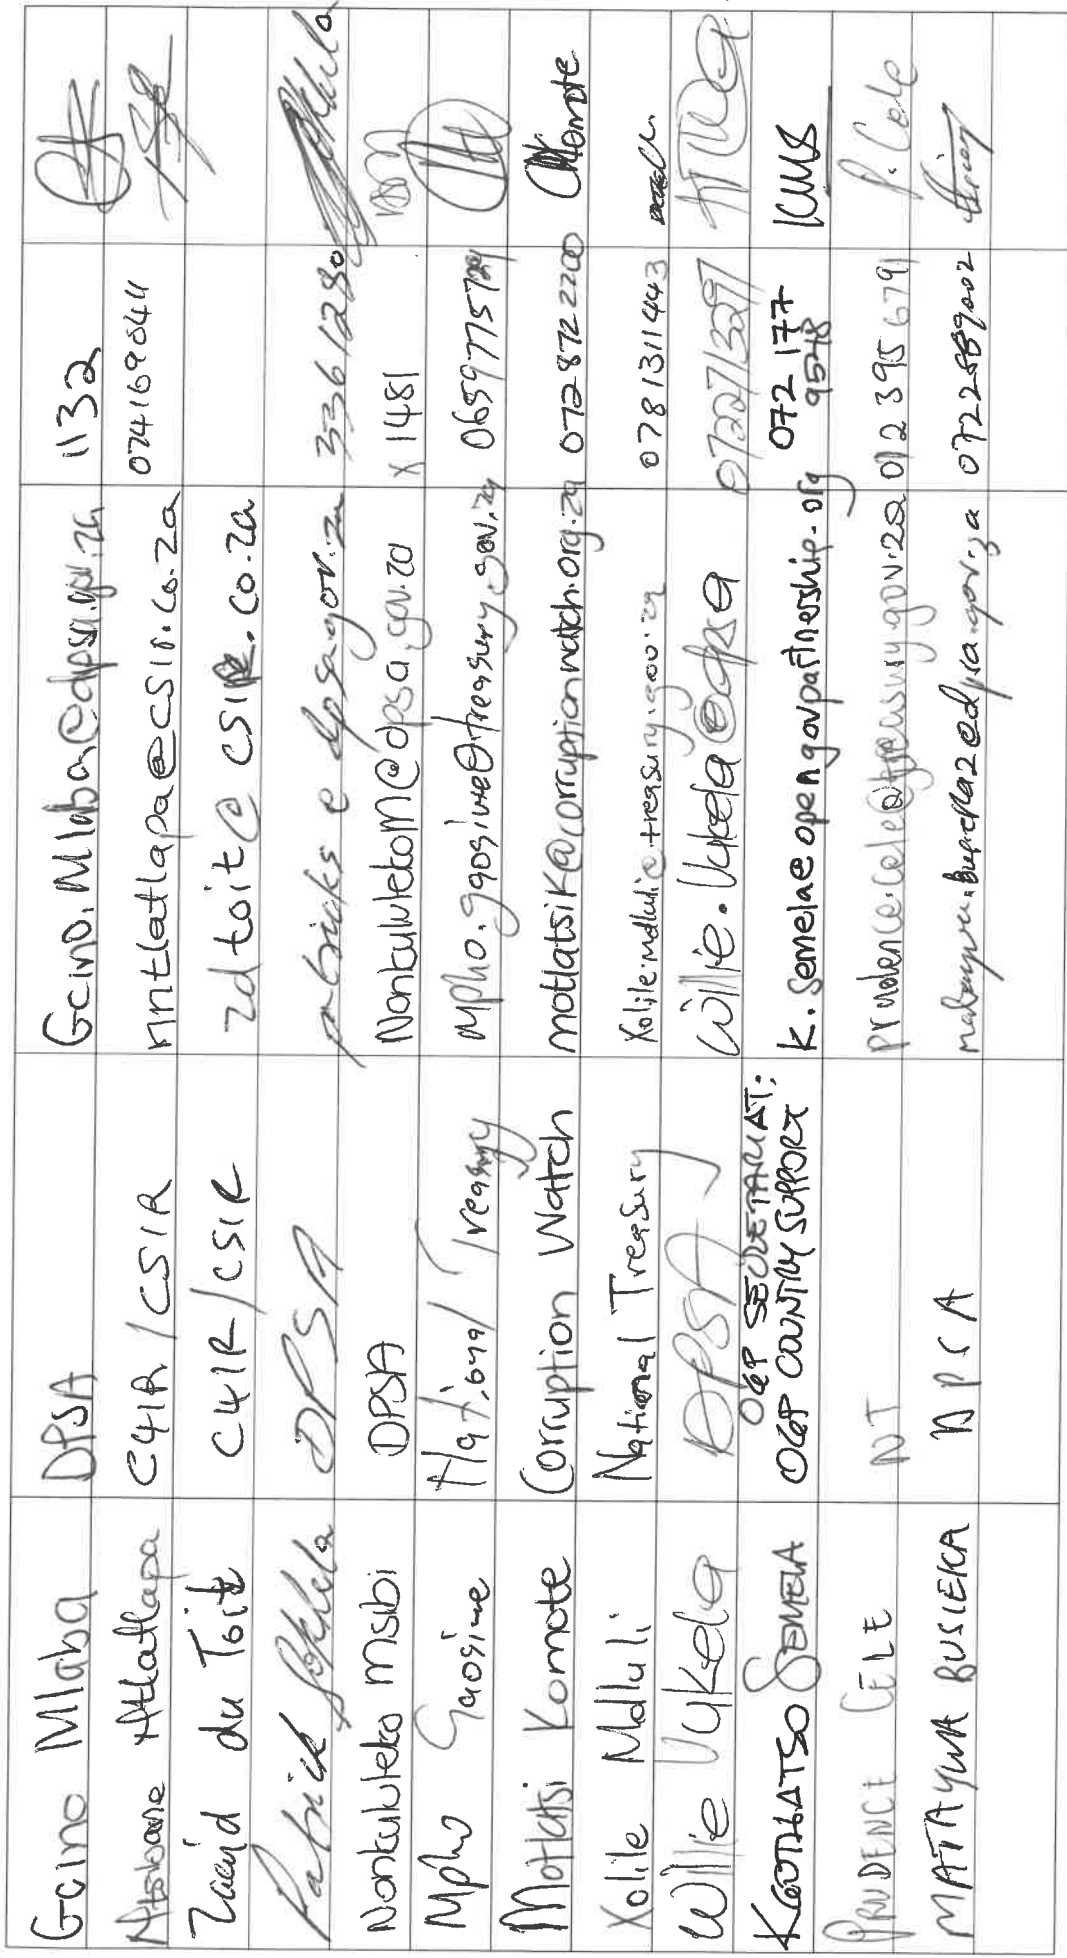 Gcino Mlaba DPSA Gcino.Mlaba@dpsa.gov.za 1132
Ntlatlapa C4IR/CSIR nntlatlapa@csir.co.za
Zaaid du Toit C4IR/CSIR zdtoit@csir.co.za
Patrick DPSA patricks@dpsa.gov.za 3361280
Nonkululeko Msibi DPSA NonkululekoM@dpsa.gov.za x1481
Mpho Gaosiwe National Treasury Mpho.gaosiwe@treasury.gov.za
Motlatsi Komote Corruption Watch motlatsiK@corruptionwatch.org.za 0728722200 Komote
Xolile Mdluli National Treasury Xolile.mdluli@treasury.gov.za 0781311443
Willie Vukela DPSA Willie.Vukela@dpsa 0722713297
KGOTHATSO SEMELA OGP SECRETARIAT: OGP COUNTRY SUPPORT K.Semela@opengovpartnership.org 072 177 KMS
PRUDENCE CELE NT prudence.cele@treasury.gov.za 012 395 6791 P.Cele
MATAYWA BUSIEKA DPSA 0722889002